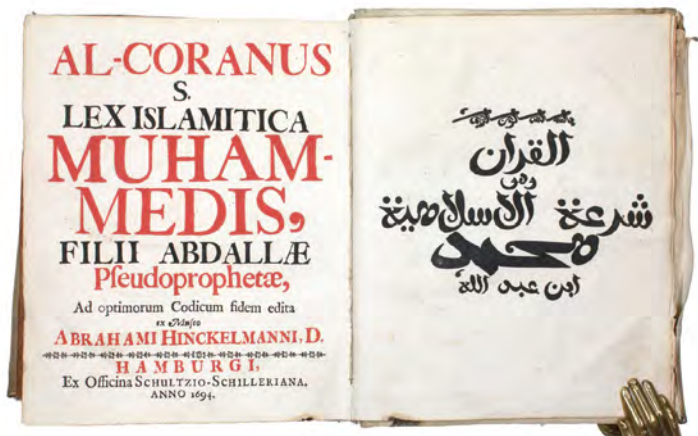 AL-CORANUS
S.
LEX ISLAMITICA
MUHAM-
MEDIS,
FILII ABDALLÆ
Pſeudoprophetæ,
Ad optimorum Codicum fidem edita
ex Muſeo
ABRAHAMI HINCKELMANNI, D.
HAMBURGI,
Ex Officina SCHULTZIO-SCHILLERIANA.
ANNO 1694.
القران
وهى
شرعة الاسلامية
محمد
ابن عبد الله